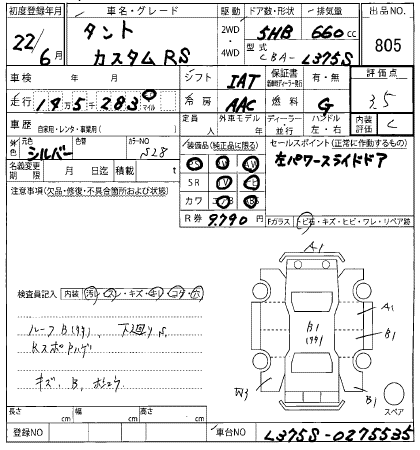 初度登録年月 車名・グレード 駆動 ドア数・形状 排気量 出品NO
22/6月 タント カスタムRS 2WD・4WD 5HB 660cc 805
型式 CBA-L375S
車検 年 月 シフト IAT 保証書 有・無 評価点
走行 19万5千283 マイル 冷房 AAC 燃料 G 3.5
車歴 自家用・レンタ・事業用( ) 定員 人 外車モデル 年 ディーラー 並行 ハンドル 左・右 内装 C
外色 元色 シルバー 色替 カラーNO S28 装備品(純正品に限る) セールスポイント(正常に作動するもの)
名義変更期限 月 日迄 積載 t PS AW 左パワースライドドア
注意事項(欠品・修復・不具合箇所および状態) SR
カワ ABS
R券 9,790 Fガラス トビ石・キズ・ヒビ・ワレ・リペア跡
A1
検査員記入 内装 汚レ・スレ・キズ・キレ・コゲ・穴
ルーフB(99)、下廻りS A1
B1 (99) B1
KスポPハゲ
キズ、B、
W3 B1
スペア
長さ cm 幅 cm 高さ cm
登録NO 車台NO L375S-0275535